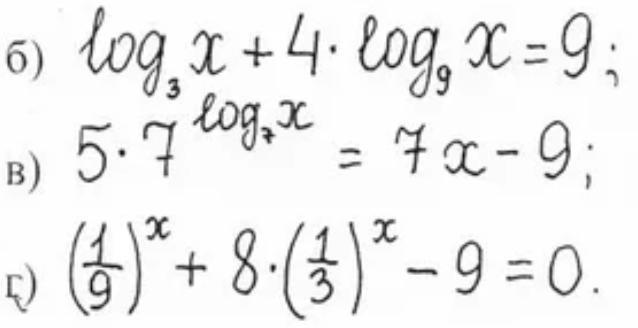 б) log₃x + 4·log₉x = 9;
в) 5·7^(log₇x) = 7x - 9;
г) (1/9)^x + 8·(1/3)^x - 9 = 0.